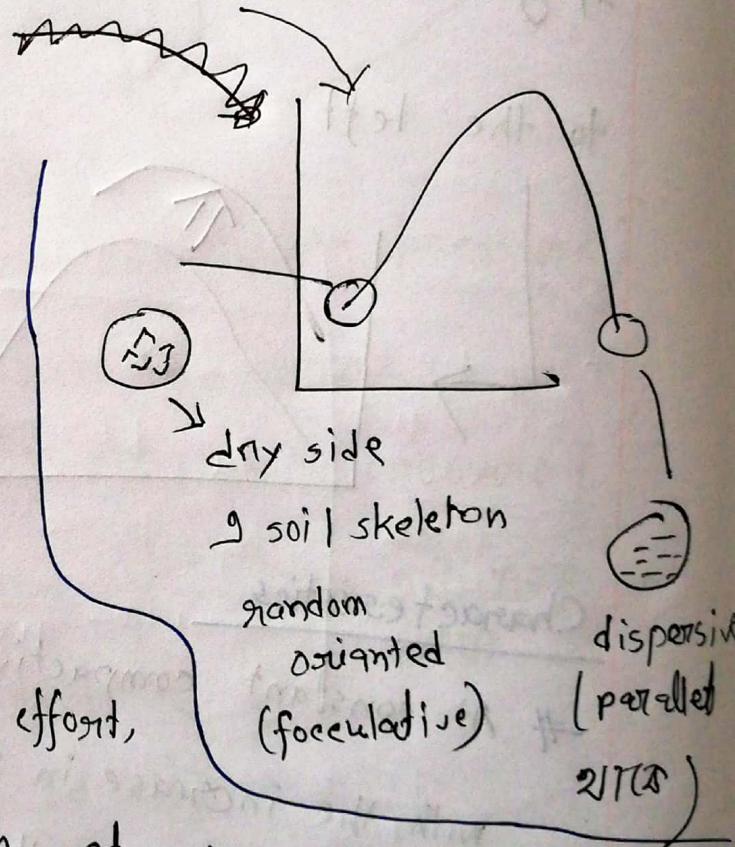 dry side
9 soil skeleton
random
orianted
(focculative)
effort,
dispersiv
(parallel
থাকে)